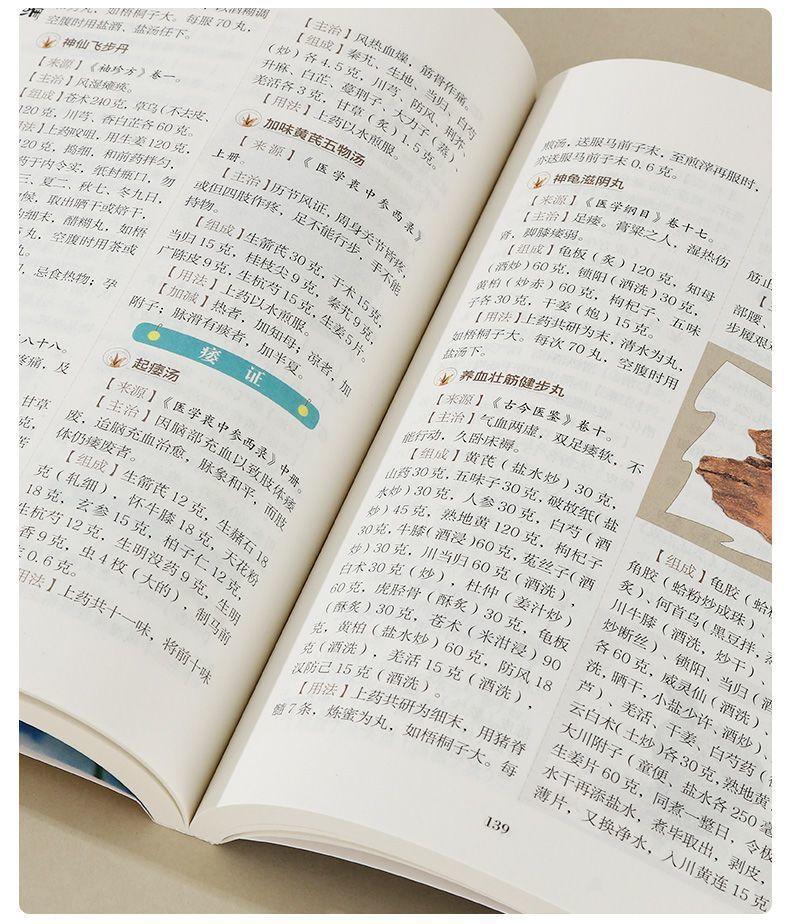 空腹时用盐酒、盐汤任下。
神仙飞步丹
【来源】《袖珍方》卷一。
【主治】风湿瘫痪。
【组成】苍术240克，草乌(不去皮，
120克，川芎、香白芷各60克。
上药㕮咀，用生姜120克，
120克，捣细，和前药拌匀，
药于内令实，纸封瓶口，勿
三、夏二、秋七、冬九日，
候，取出晒干或焙干，
为细末，醋糊丸，如梧
丸，空腹时用茶或
忌食热物；孕
八十八。
疼痛，及
甘草
克，
【主治】风热血燥，筋骨作痛。
【组成】秦艽、生地、当归、白芍
(炒)各4.5克，川芎、防风、荆芥、
升麻、白芷、蔓荆子、大力子(蒸)、
羌活各3克，甘草(炙)1.5克。
【用法】上药以水煎服。
加味黄芪五物汤
【来源】《医学衷中参西录》
上册。
【主治】历节风证，周身关节皆疼，
或但四肢作疼，足不能行步，手不能
持物。
【组成】生箭芪30克，于术15克，
当归15克，桂枝尖9克，秦艽9克，
广陈皮9克，生杭芍15克，生姜5片。
【用法】上药以水煎服。
【加减】热者，加知母；凉者，加
附子；脉滑有痰者，加半夏。
痿 证
起痿汤
【来源】《医学衷中参西录》中册。
【主治】因脑部充血以致肢体痿
废，迨脑充血治愈，脉象和平，而肢
体仍痿废者。
【组成】生箭芪12克，生赭石18
克(轧细)，怀牛膝18克，天花粉
18克，玄参15克，柏子仁12克，
生杭芍12克，生明没药9克，生明
香9克，虫4枚(大的)，制马前
末0.6克。
【用法】上药共十一味，将前十味
煎汤，送服马前子末，至煎滓再服时，
亦送服马前子末0.6克。
神龟滋阴丸
【来源】《医学纲目》卷十七。
【主治】足痿。膏粱之人，湿热伤
肾，脚膝痿弱。
【组成】龟板(炙)120克，知母
(酒炒)60克，锁阳(酒洗)30克，
黄柏(炒赤)60克，枸杞子、五味
子各30克，干姜(炮)15克。
【用法】上药共研为末，清水为丸，
如梧桐子大。每次70丸，空腹时用
盐汤下。
养血壮筋健步丸
【来源】《古今医鉴》卷十。
【主治】气血两虚，双足痿软，不
能行动，久卧床褥。
【组成】黄芪(盐水炒)30克，
山药30克，五味子30克，破故纸(盐
水炒)30克，人参30克，白芍(酒
炒)45克，熟地黄120克，枸杞子
30克，牛膝(酒浸)60克，菟丝子(酒
炒)30克，川当归60克(酒洗)，
白术30克(炒)，杜仲(姜汁炒)
60克，虎胫骨(酥炙)30克，龟板
(酥炙)30克，苍术(米泔浸)90
克，黄柏(盐水炒)60克，防风18
克(酒洗)，羌活15克(酒洗)，
汉防己15克(酒洗)。
【用法】上药共研为细末，用猪脊
髓7条，炼蜜为丸，如梧桐子大。每
139
筋止
部腰、
步履艰
【组成】龟胶(蛤粉
角胶(蛤粉炒成珠)、
炙)、何首乌(黑豆拌，蒸
川牛膝(酒洗，炒干)、
炒断丝)、锁阳、当归(酒
各60克，威灵仙(酒洗)、
洗，晒干，小盐少许、酒炒)、
芦)、羌活、干姜、白芍药(
云白术(土炒)各30克，熟地黄
大川附子(童便、盐水各250毫
生姜片60克，同煮一整日，令极
水干再添盐水，煮毕取出，剥皮，
薄片，又换净水，入川黄连15克